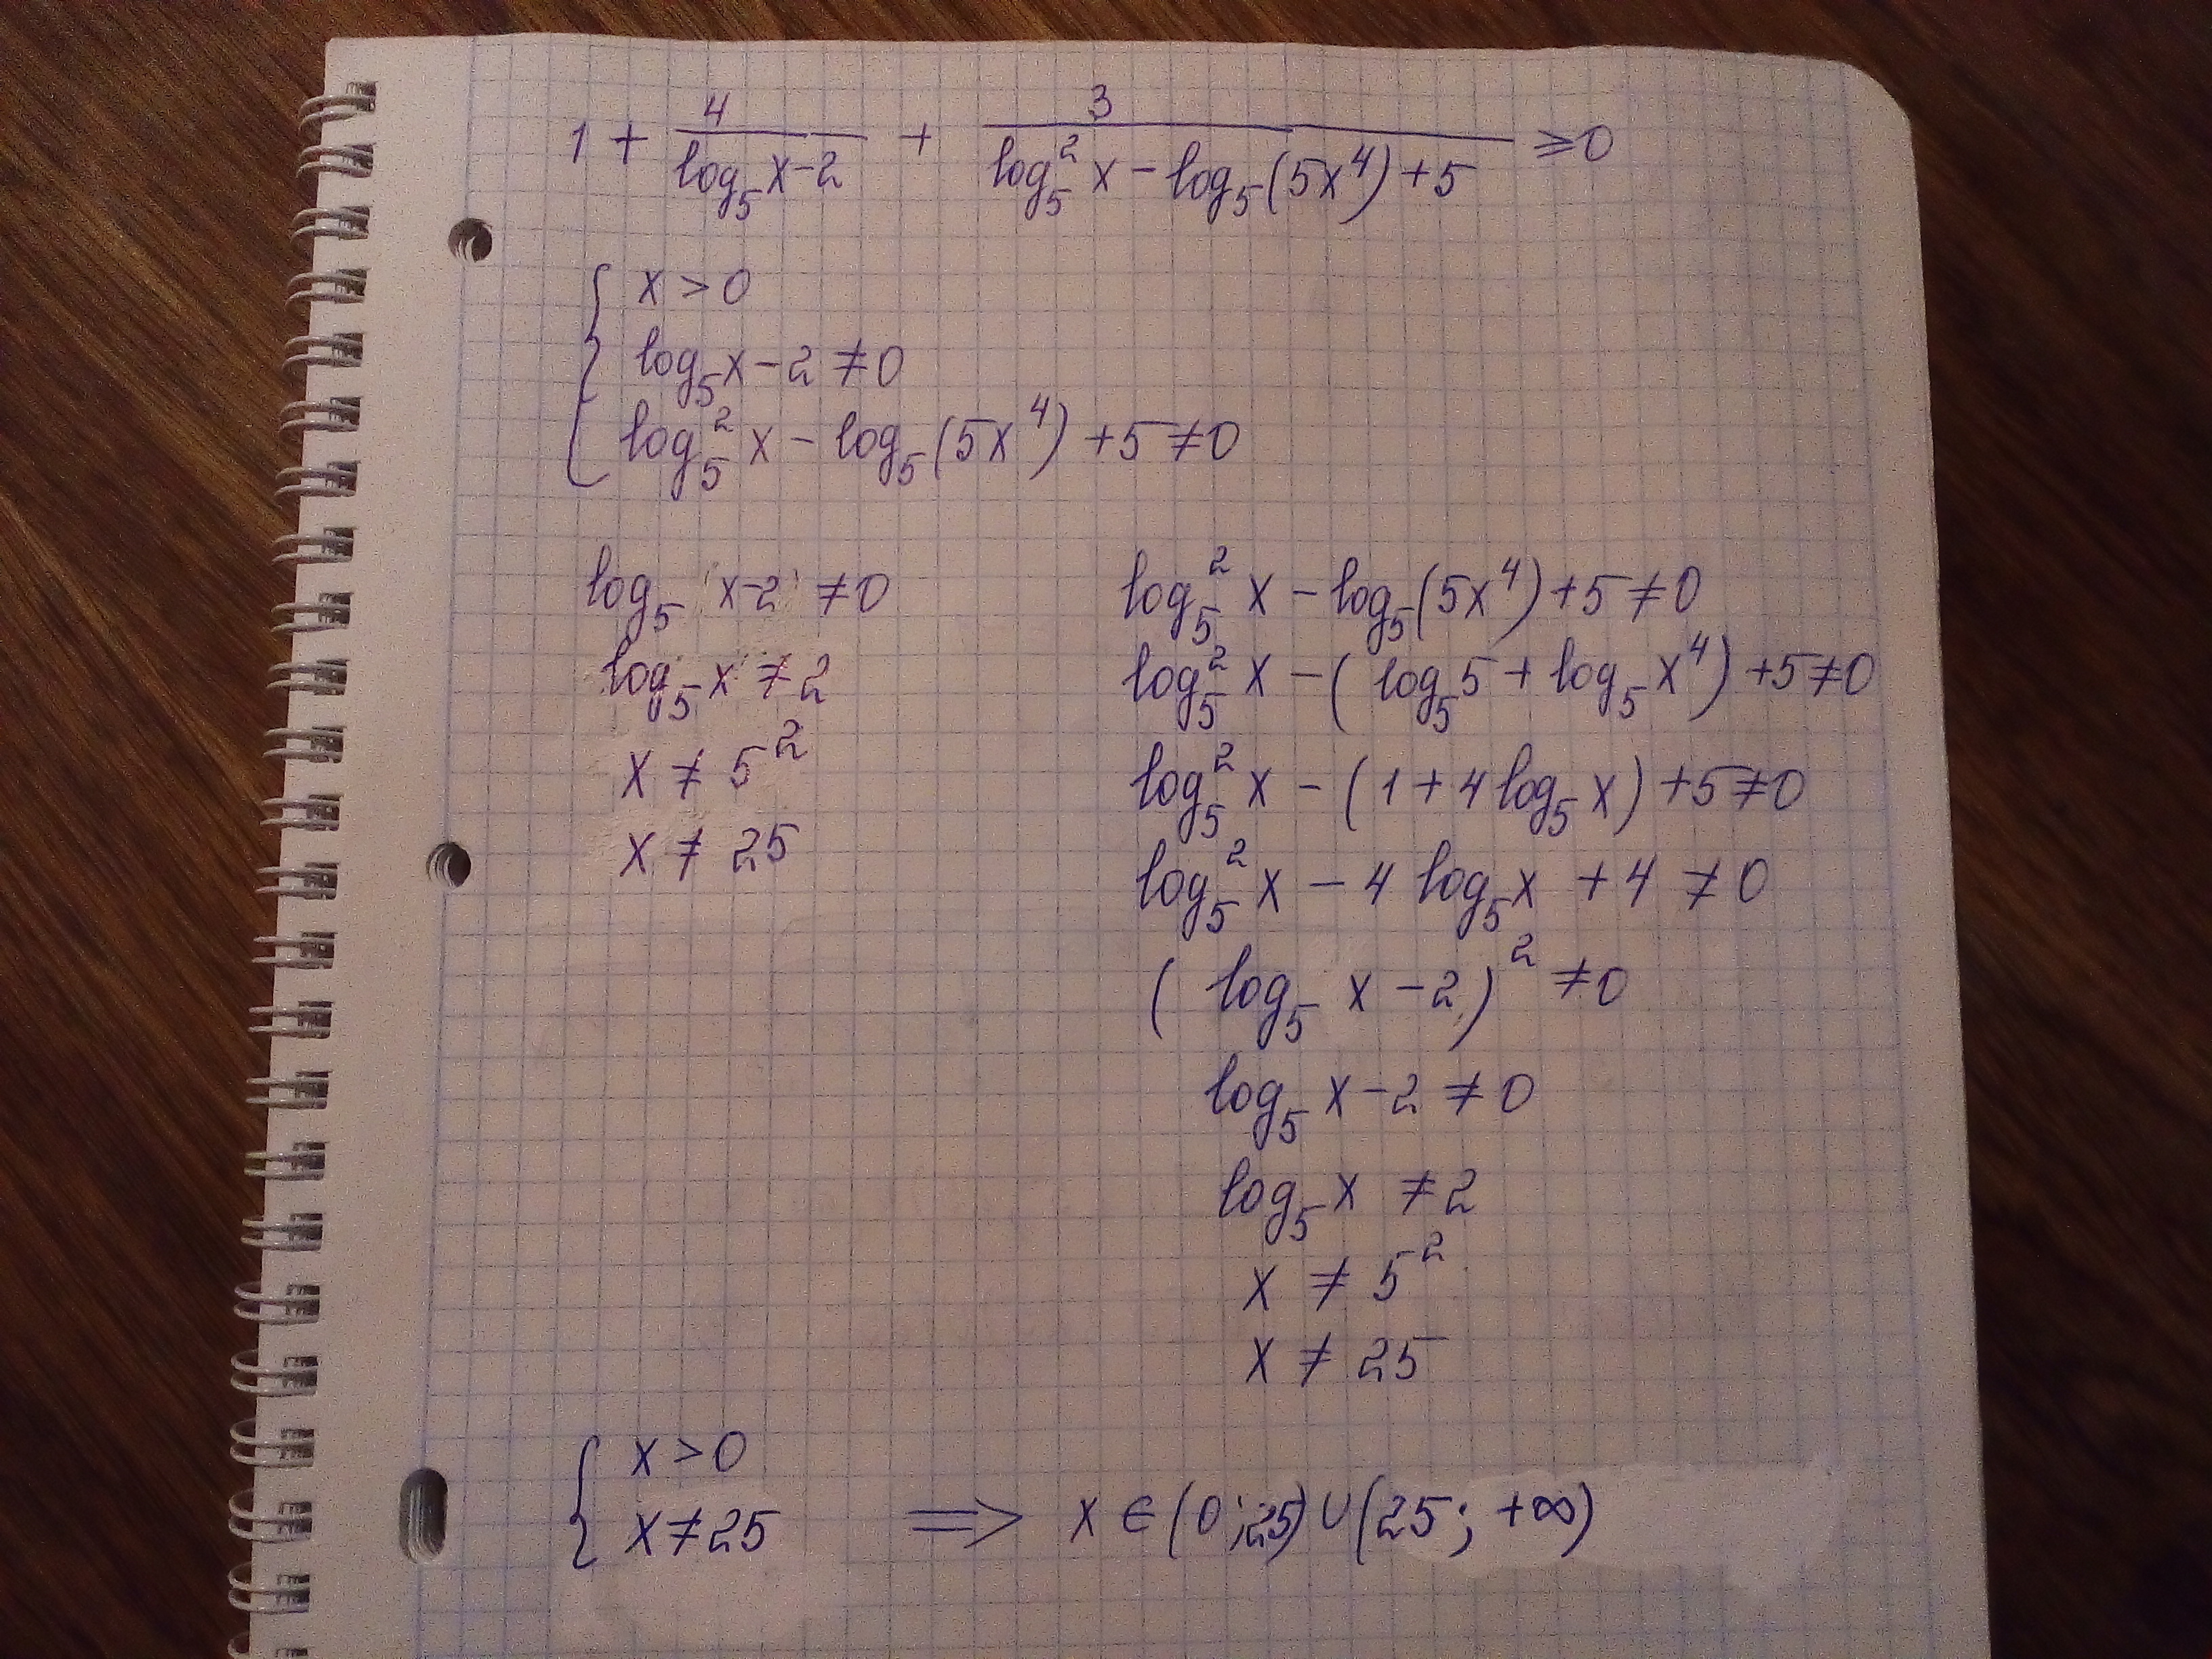 1 + 4/(log₅x-2) + 3/(log₅²x - log₅(5x⁴)+5) ⩾0
{ x > 0
log₅x-2 ≠0
log₅²x - log₅(5x⁴) +5≠0
log₅ x-2 ≠0
log₅x ≠2
x ≠ 5²
x ≠ 25
log₅²x - log₅(5x⁴)+5≠0
log₅²x - (log₅5 + log₅x⁴) +5≠0
log₅²x - (1+4log₅x) +5≠0
log₅²x - 4 log₅x +4 ≠0
(log₅ x -2)² ≠0
log₅ x-2 ≠0
log₅x ≠2
x ≠ 5²
x ≠ 25
{ x >0
x≠25 ⟹ x ∈ (0;25)∪(25; +∞)